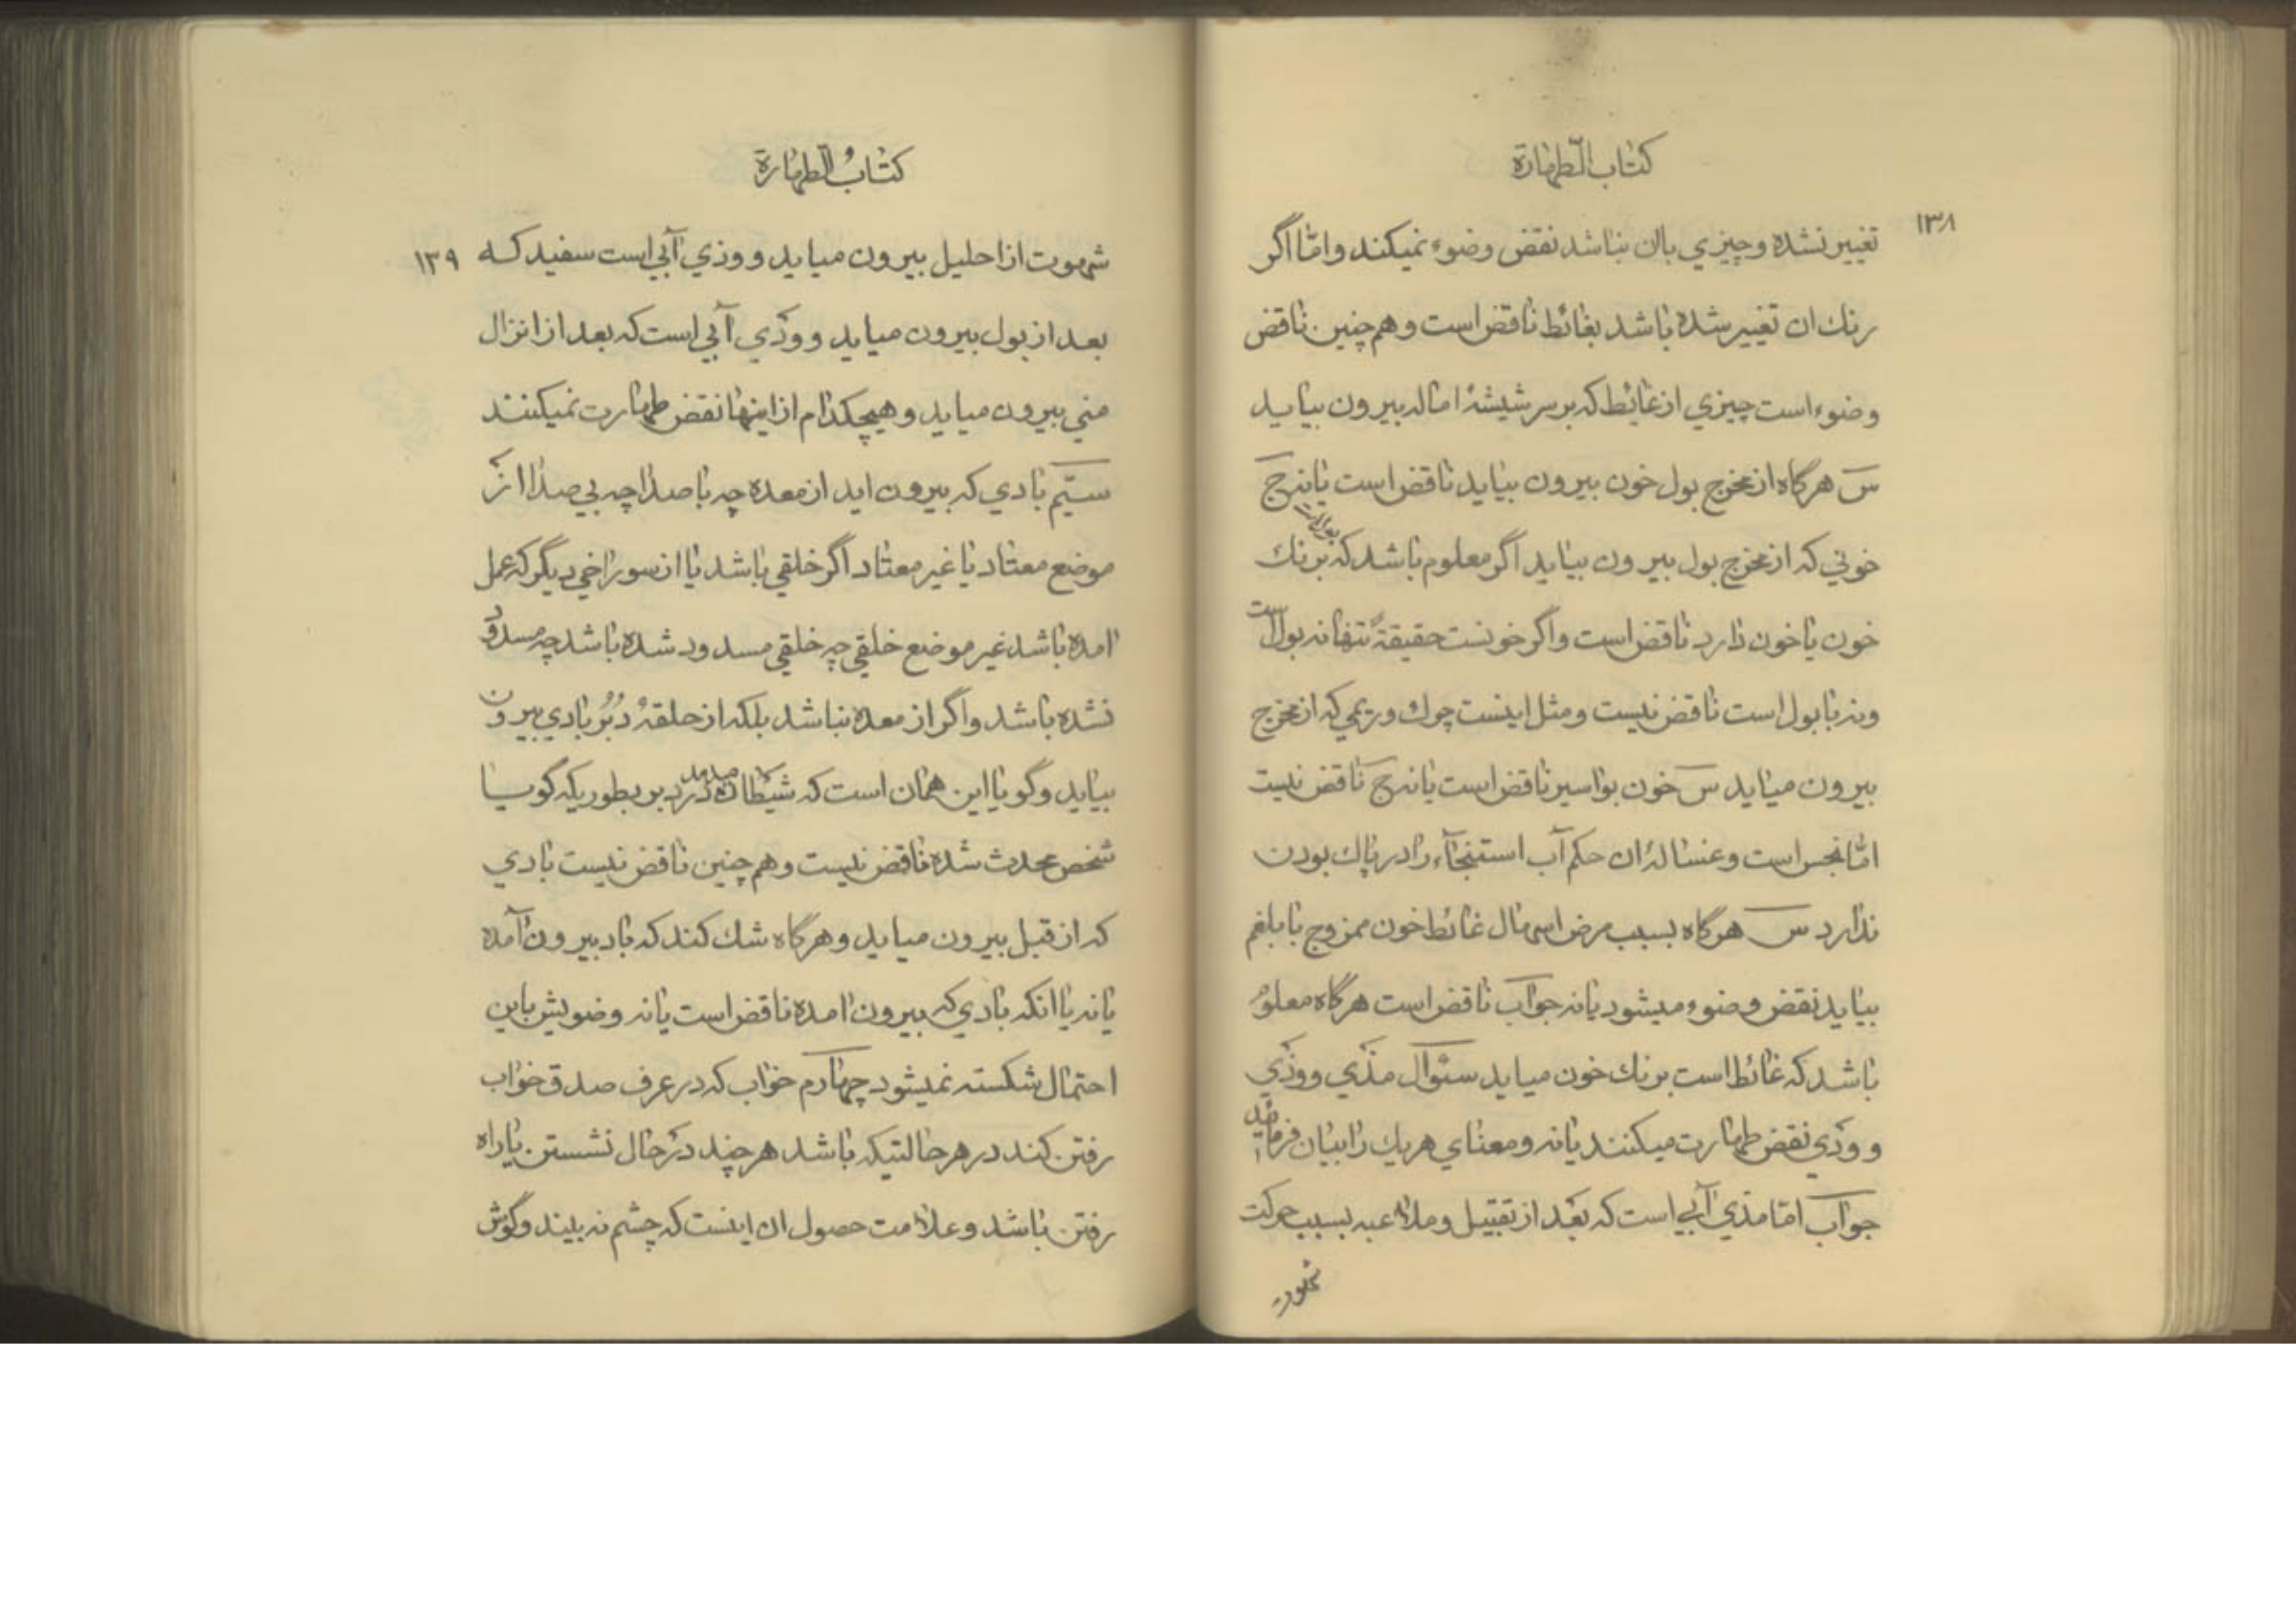 كتاب الطهارة
۱۳۸
تغییر نشده و چیزی بان نباشد نقض وضوء نمیکند و امّا اگر
رنك ان تغییر شده باشد بغائط ناقض است و هم چنین ناقض
وضوء است چیزی از غائط که بر سر شیشهٔ اماله بیرون بیاید
س هرگاه از مخرج بول خون بیرون بیاید ناقض است یا نه ج
خونی که از مخرج بول بیرون بیاید اگر معلوم باشد که بول است برنك
خون یا خون دارد ناقض است و اگر خونست حقیقةً تنها نه بول است
و نه با بول است ناقض نیست و مثل اینست چرك و ریمی که از مخرج
بیرون میاید س خون بواسیر ناقض است یا نه ج ناقض نیست
امّا نجس است و غسالهٔ ان حکم آب استنجآء را در پاك بودن
ندارد س هرگاه بسبب مرض اسهال غائط خون ممزوج با بلغم
بیاید نقض وضوء میشود یا نه جواب ناقض است هرگاه معلوم
باشد که غائط است برنك خون میاید سئوال مذی و وذی
و ودی نقض طهارت میکنند یا نه و معنای هریك را بیان فرمائید
جواب امّا مذی آبی است که بعد از تقبیل و ملاعبه بسبب حرکت
شهوت
كتابُ الطهارة
۱۳۹
شهوت از احلیل بیرون میاید و وذی آبی است سفید که
بعد از بول بیرون میاید و ودی آبی است که بعد از انزال
منی بیرون میاید و هیچکدام از اینها نقض طهارت نمیکنند
سیّم بادی که بیرون اید از معده چه با صدا چه بی صدا از
موضع معتاد یا غیر معتاد اگر خلقی باشد یا از سوراخی دیگر که عمل
امده باشد غیر موضع خلقی چه خلقی مسدود شده باشد چه مسدود
نشده باشد و اگر از معده نباشد بلکه از حلقهٔ دُبُر بادی بیرون
بیاید و گویا این همان است که شیطان میدمد در دبر بطوریکه گویا
شخص محدث شده ناقض نیست و هم چنین ناقض نیست بادی
که از قبل بیرون میاید و هرگاه شك کند که باد بیرون آمده
یا نه یا انکه بادی که بیرون امده ناقض است یا نه وضویش باین
احتمال شکسته نمیشود چهارم خواب که در عرف صدق خواب
رفتن کند در هر حالتیکه باشد هر چند در حال نشستن یا راه
رفتن باشد و علامت حصول ان اینست که چشم نه بیند و گوش